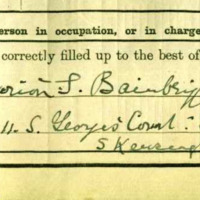 erson in occupation, or in charge
correctly filled up to the best of
S. Bainbri
11. S. Georges Court.
S Kensing